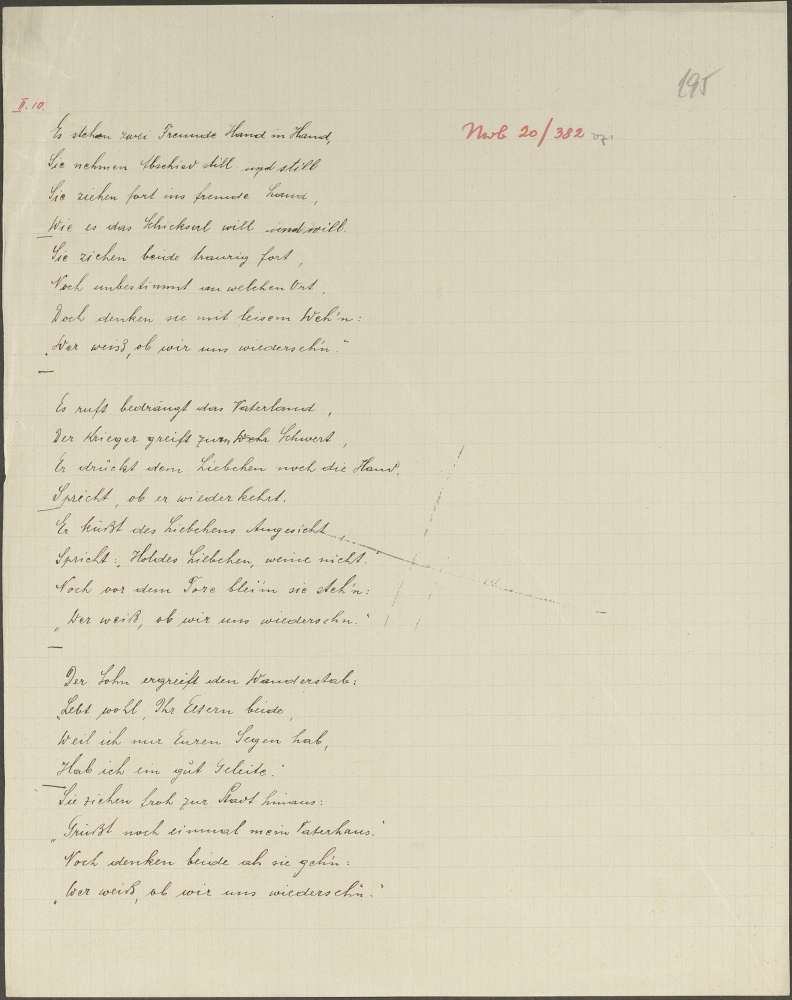 195
II. 10.
Nwb 20/382
Es stehen zwei Freunde Hand in Hand,
Sie nehmen Abschied still und still
Sie ziehen fort ins fremde Land,
Wie es das Schicksal will und will.
Sie ziehen beide traurig fort,
Noch unbestimmt an welchen Ort.
Doch denken sie mit leisem Weh'n:
„Wer weiß, ob wir uns wiederseh'n."
Es ruft bedrängt das Vaterland,
Der Krieger greift zum Schwert,
Er drückt dem Liebchen noch die Hand,
Spricht, ob er wiederkehrt.
Er küßt des Liebchens Angesicht
Spricht: „Holdes Liebchen, weine nicht."
Noch vor dem Tore bleib'n sie steh'n:
„Wer weiß, ob wir uns wiedersehn."
Der Sohn ergreift den Wanderstab:
„Lebt wohl, Ihr Eltern beide,
Weil ich nur Euren Segen hab,
Hab ich ein gut Geleite."
Sie ziehen froh zur Stadt hinaus:
„Grüßt noch einmal mein Vaterhaus."
Noch denken beide als sie geh'n:
„Wer weiß, ob wir uns wiederseh'n."